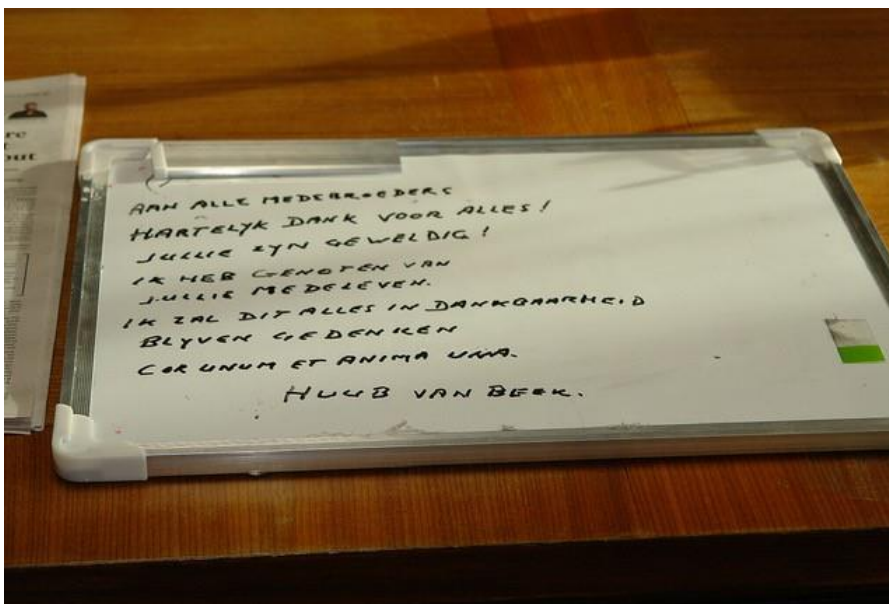 re
t
out
AAN ALLE MEDEBROEDERS
HARTELYK DANK VOOR ALLES!
JULLIE ZYN GEWELDIG!
IK HEB GENOTEN VAN
JULLIE MEDELEVEN.
IK ZAL DIT ALLES IN DANKBAARHEID
BLYVEN GEDENKEN
COR UNUM ET ANIMA UNA.
HUUB VAN BEEK.